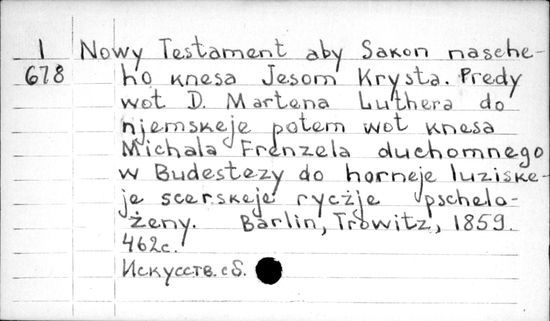 1 Nowy Testament aby Sakon nasche-
678 ho knesa Jesom Krysta. Predy
wot D. Martena Luthera do
njemskeje potem wot knesa
Michala Frenzela duchomnego
w Budestezy do horneje luziske-
je scerskeje ryczje pschelo-
żeny. Barlin, Trowitz, 1859.
462с.
Искусств. сб.